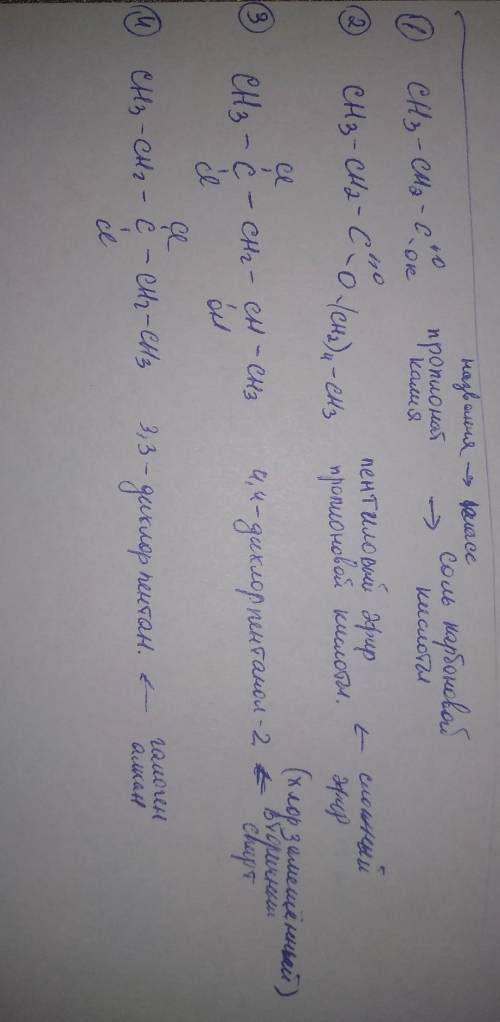 названия → класс
① CH3-CH2-C=O-OK пропионат калия → соль карбоновой кислоты
② CH3-CH2-C=O-O-(CH2)4-CH3 пентиловый эфир пропионовой кислоты. ← сложный эфир
Cl
③ CH3-C-CH2-CH-CH3 4,4-дихлорпентанол-2 ← (хлорзамещённый) вторичный спирт
Cl OH
Cl
④ CH3-CH2-C-CH2-CH3 3,3-дихлорпентан. ← галоген алкан
Cl